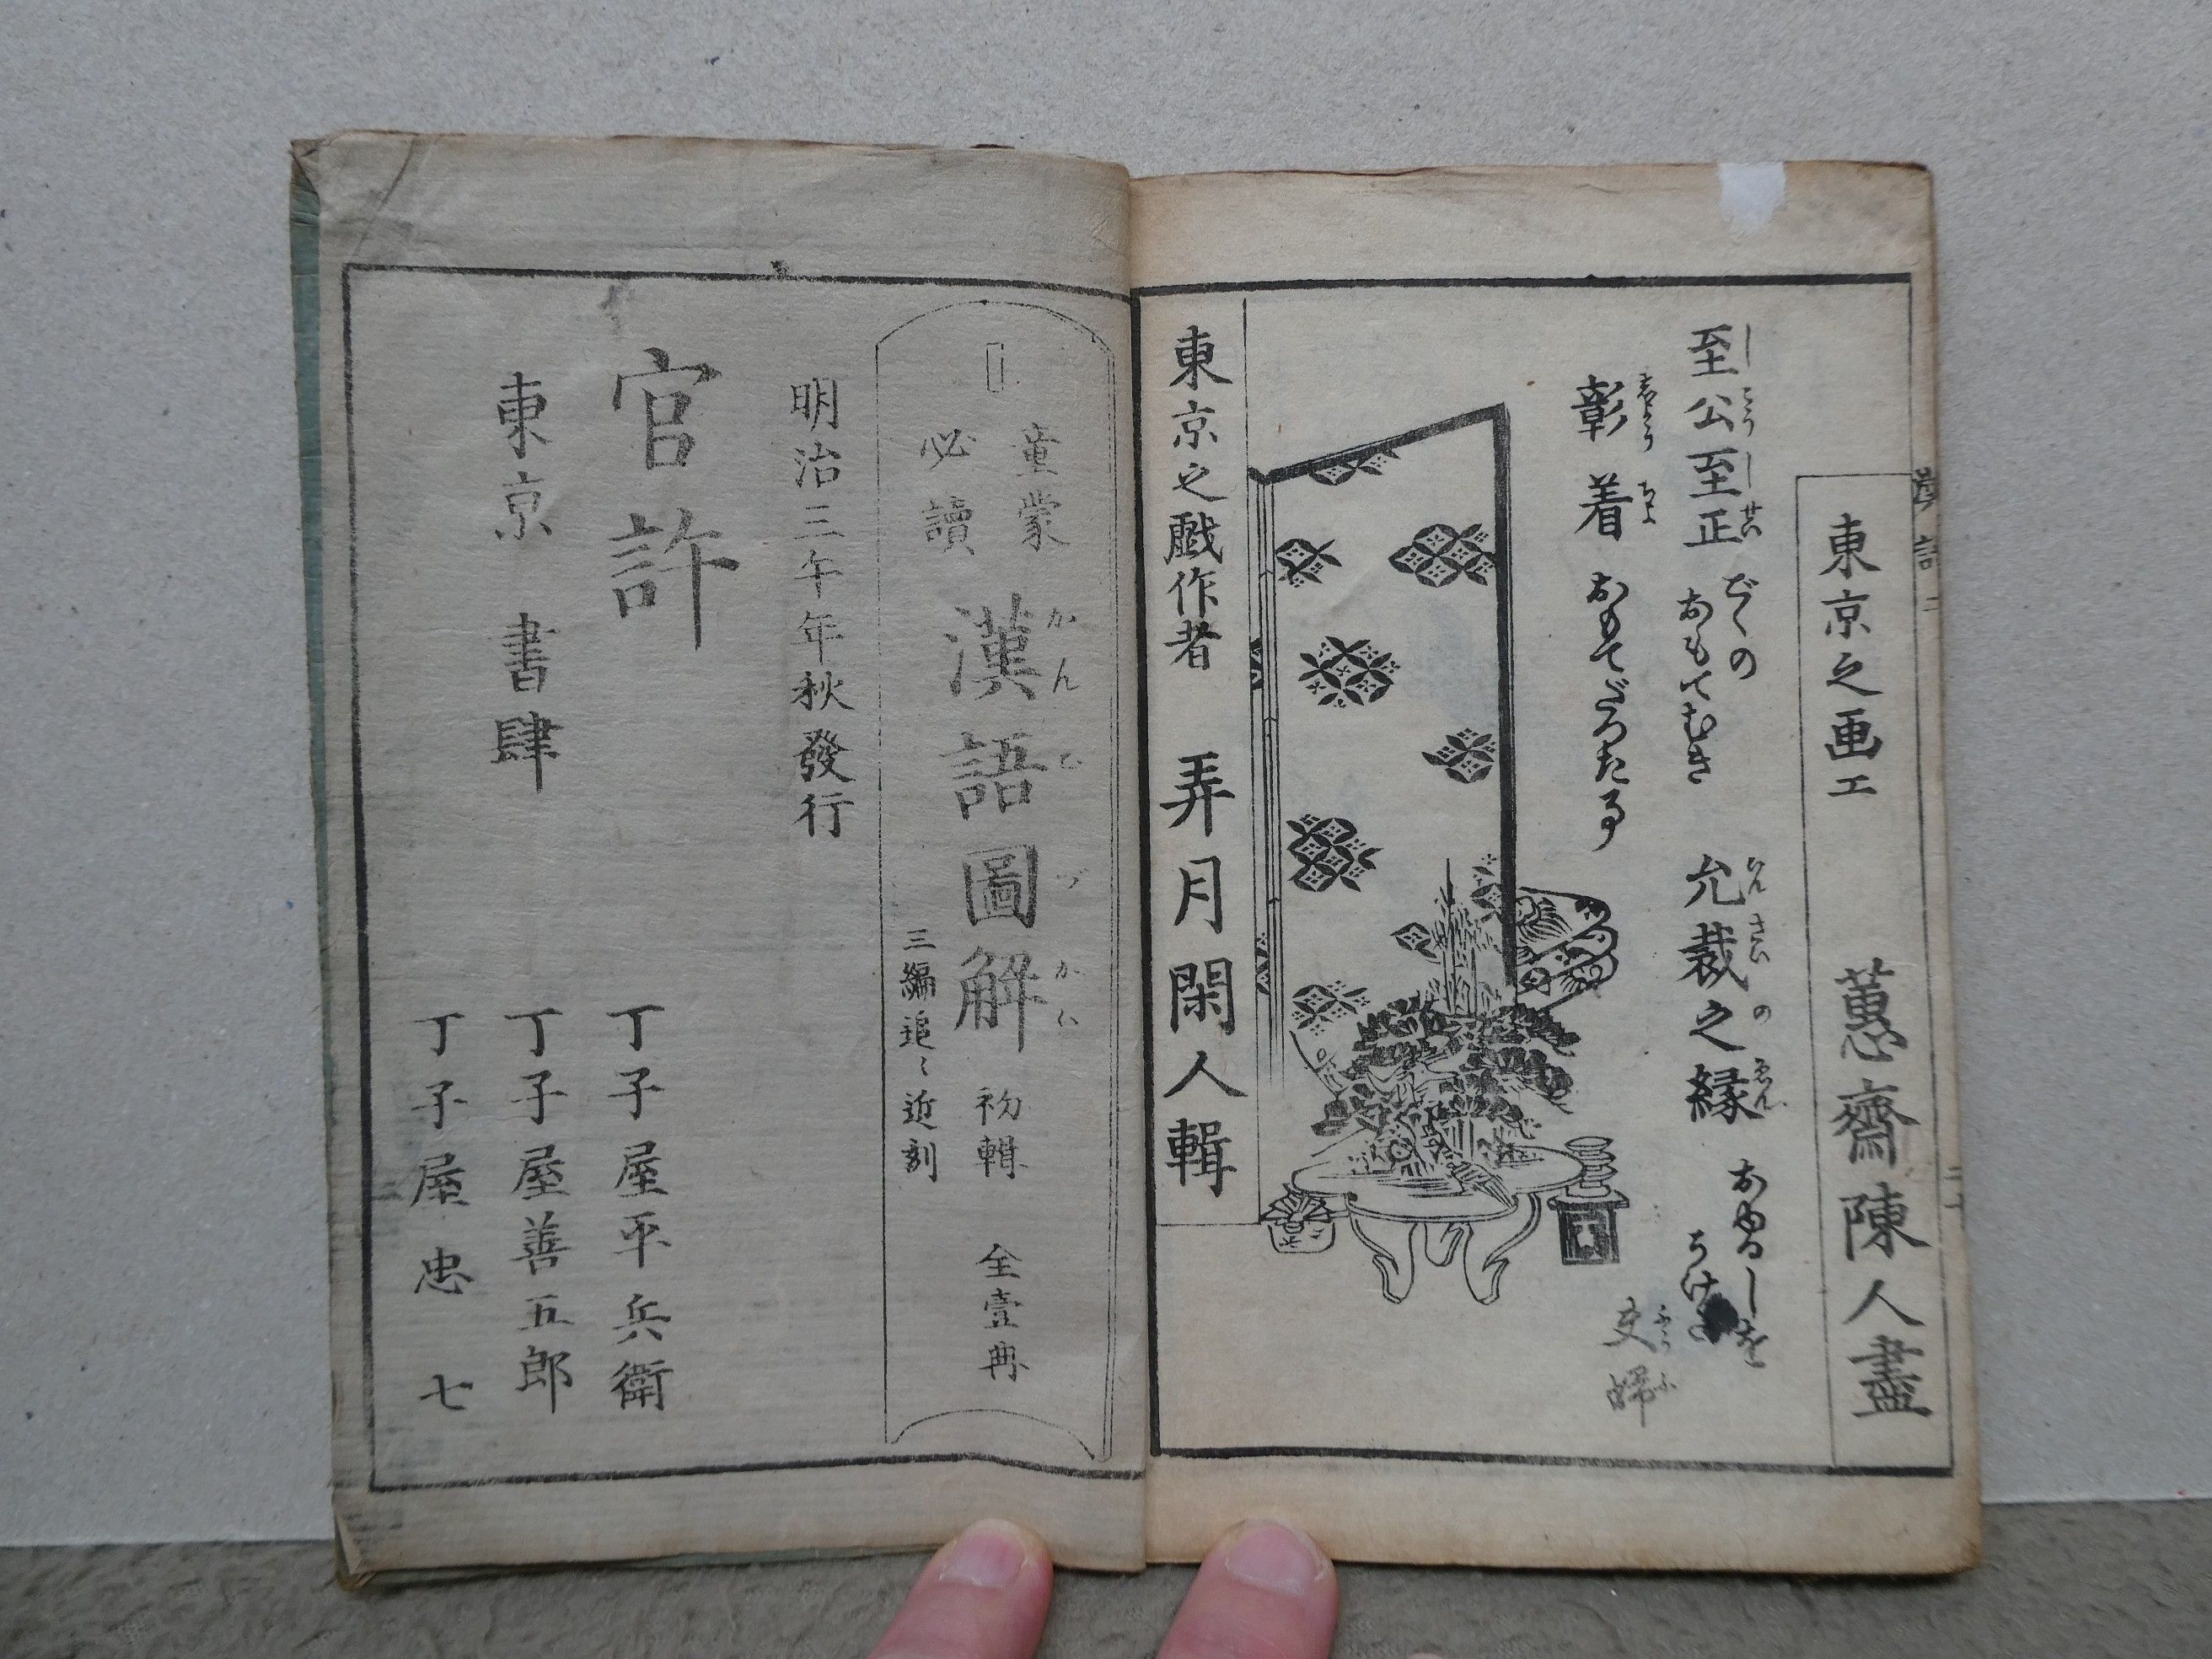 東京之画工 蕙齋陳人畫
至公至正 ぢくの おもてむき 允裁之縁 おゆるしを うけ
しこうしせい いんさいのゑん
彰着 おもてだつたる事
夫婦
ふうふ
東京之戯作者 弄月閑人輯
童蒙
必讀
漢語圖解 初輯 全壹冊
かんごづかい
三編追々近刻
明治三午年秋發行
官許
東京 書肆
丁子屋平兵衛
丁子屋善五郎
丁子屋忠七